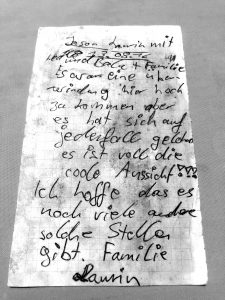 Jason Laurin mit
und Bela + Familie
Es war eine über
windung hier hoch
zu kommen aber
es hat sich auf
jedenfall gelohnt
es ist voll die
coole Aussicht???
Ich hoffe das es
noch viele andere
solche Stellen
gibt. Familie
Laurin